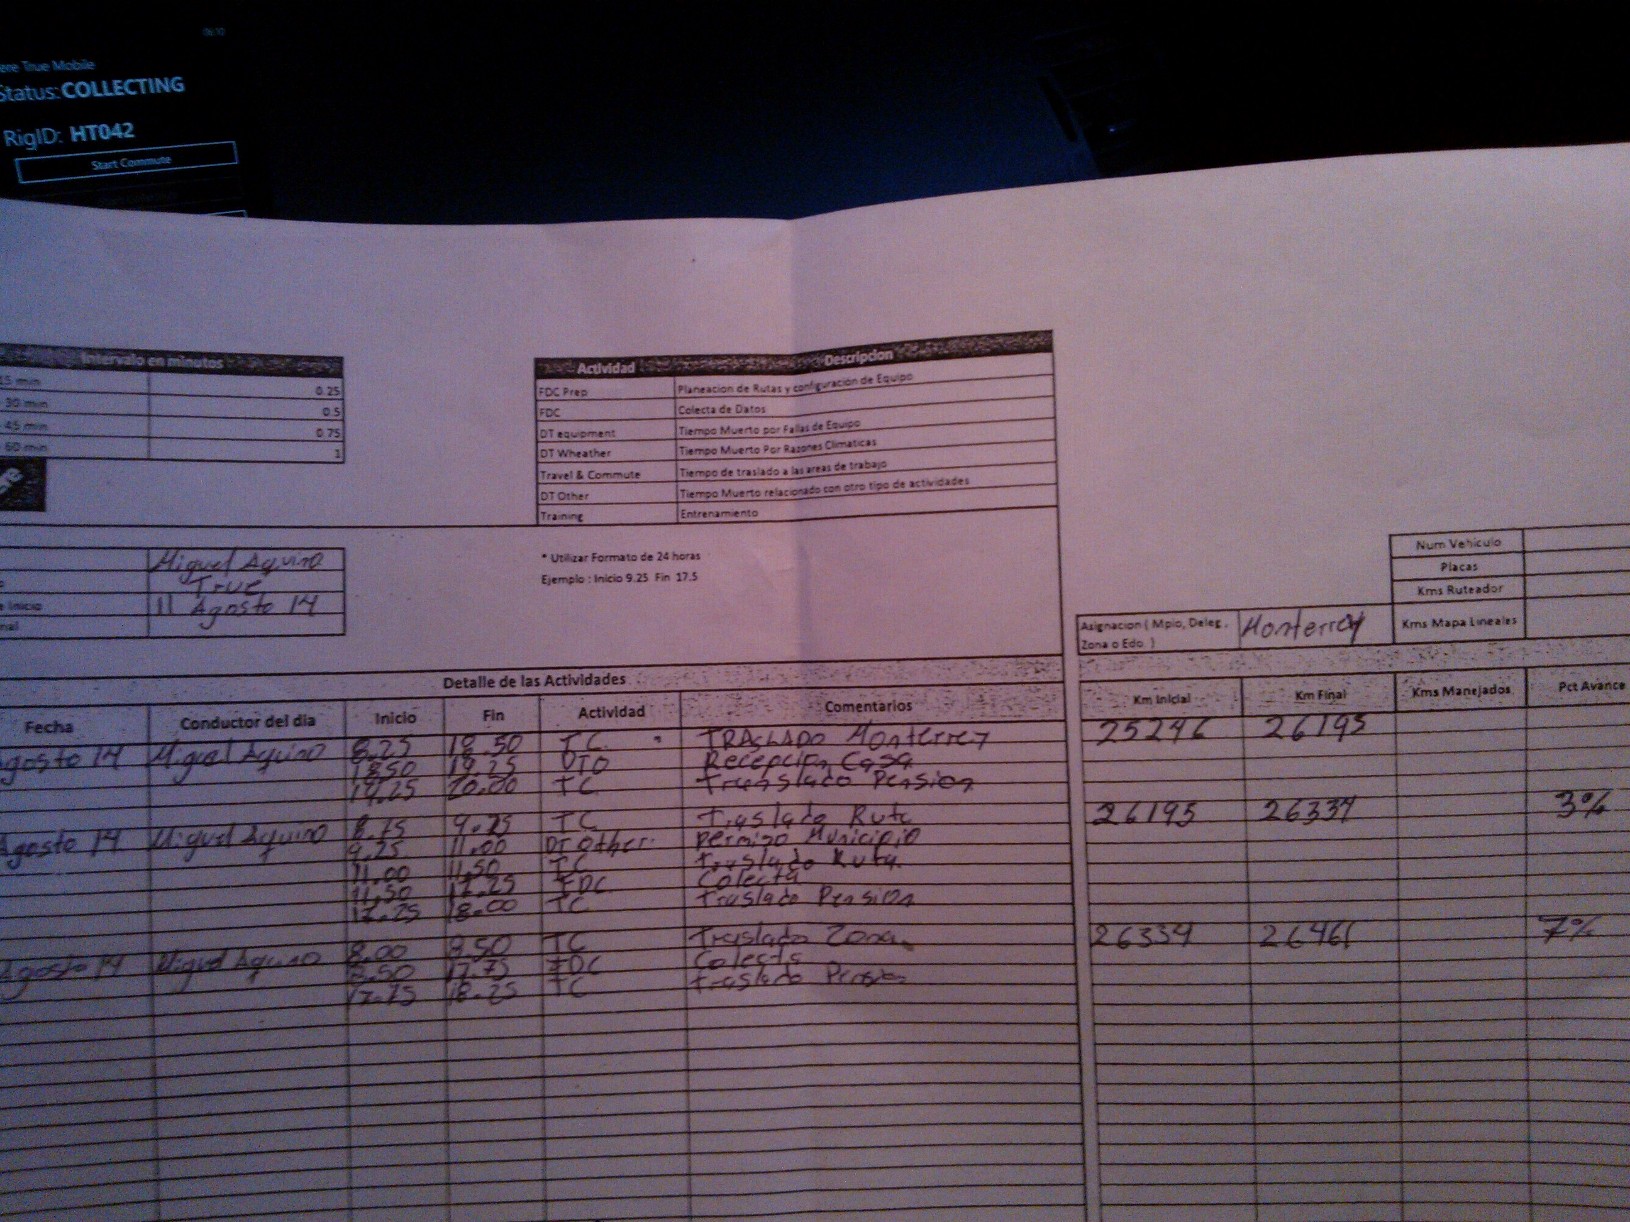 06:10
ere True Mobile
Status: COLLECTING
RigID: HT042
Start Commute
Intervalo en minutos
15 min 0.25
30 min 0.5
45 min 0.75
60 min 1
Actividad Descripcion
FDC Prep Planeacion de Rutas y configuracion de Equipo
FDC Colecta de Datos
DT equipment Tiempo Muerto por Fallas de Equipo
DT Wheather Tiempo Muerto Por Razones Climaticas
Travel & Commute Tiempo de traslado a las areas de trabajo
DT Other Tiempo Muerto relacionado con otro tipo de actividades
Training Entrenamiento
Miguel Aquino
True
Inicio 11 Agosto 14
* Utilizar Formato de 24 horas
Ejemplo : Inicio 9.25 Fin 17.5
Num Vehiculo
Placas
Kms Ruteador
Kms Mapa Lineales
Asignacion ( Mpio, Deleg, Zona o Edo ) Monterrey
Detalle de las Actividades
Fecha Conductor del dia Inicio Fin Actividad Comentarios Km Inicial Km Final Kms Manejados Pct Avance
Agosto 14 Miguel Aquino 8.25 18.50 TC. TRASLADO Monterrey 25246 26195
18.50 19.25 DTO Recepcion Casa
19.25 20.00 TC Translado Pension
Agosto 14 Miguel Aquino 8.75 9.25 TC Traslado Ruta 26195 26334 3%
9.25 11.00 DT Other. permiso Municipio
11.00 11.50 TC Traslado Ruta.
11.50 17.25 FDC Colecta
17.25 18.00 TC Traslado Pension
Agosto 14 Miguel Aquino 8.00 8.50 TC Traslado Zona. 26334 26461 7%
8.50 17.75 FDC Colecta
17.75 18.25 TC traslado Pension